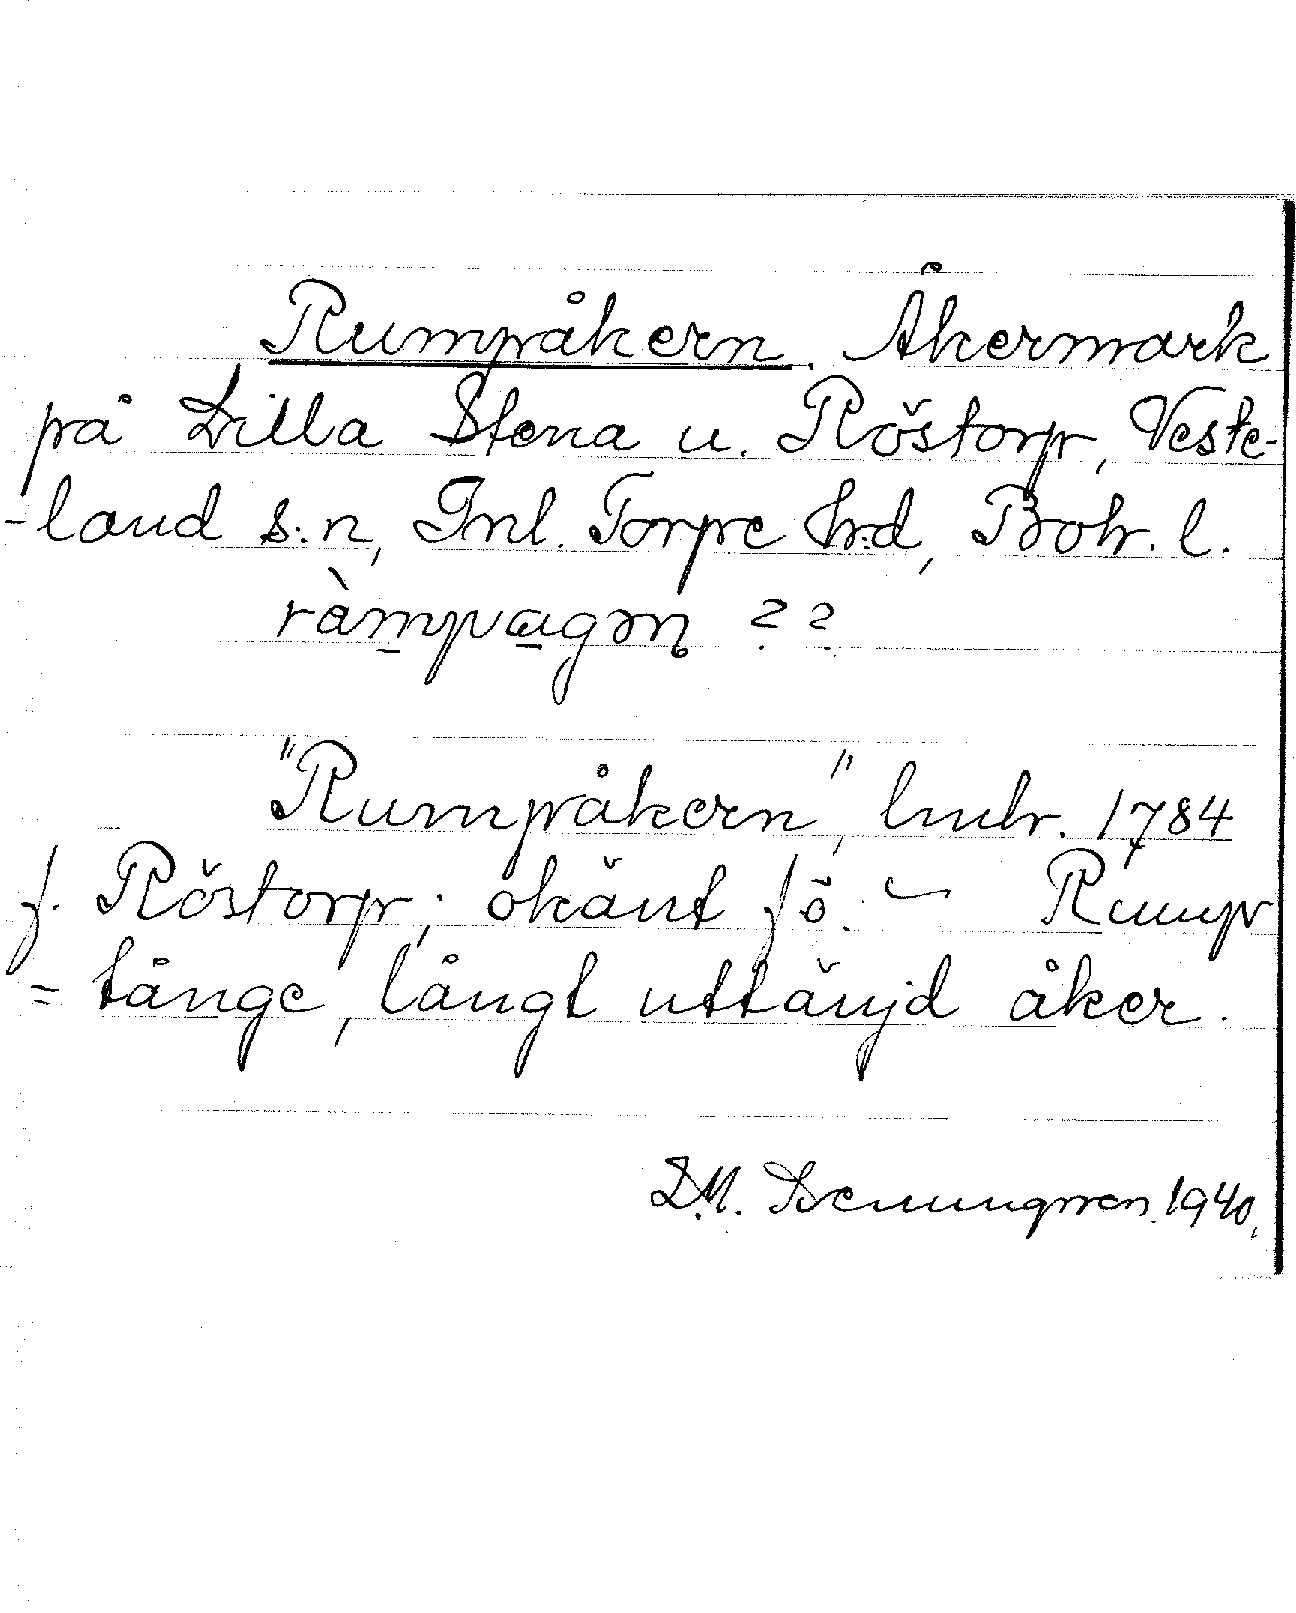 Rumpåkern. Åkermark
på Lilla Stena u. Röstorp, Veste-
-land s:n, Inl. Torpe h:d, Boh. l.
ràmpagən ? ?
"Rumpåkern", lmh. 1784
f. Röstorp; okänt fö. – Rump
= tånge, långt uttänjd åker.
D.M. 1940.